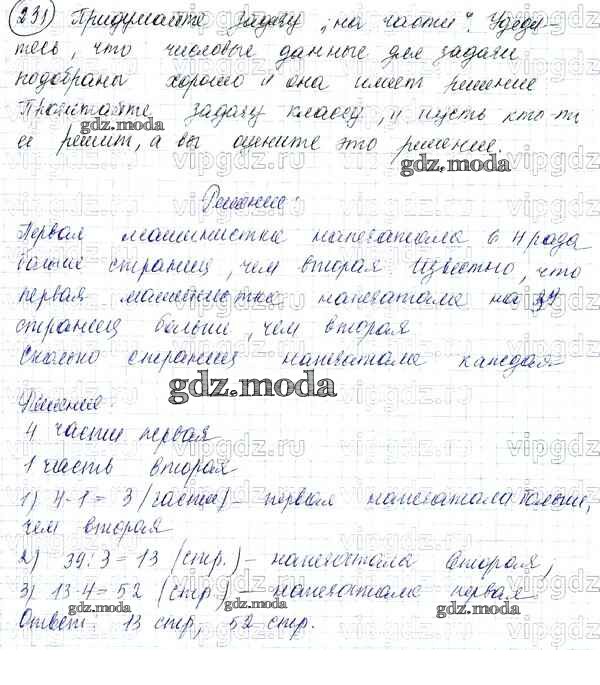 231) Придумайте задачу „на части“. Убеди-
тесь, что числовые данные для задачи
подобраны хорошо и она имеет решение
Прочитайте задачу классу, и пусть кто-то
её решит, а вы оцените это решение.
gdz.moda
Решение:
Первая машинистка напечатала в 4 рада
больше страниц, чем вторая. Известно, что
первая машинистка напечатала на 39
страниц больше, чем вторая
Сколько страниц напечатала каждая
gdz.moda
Решение:
4 части первая
1 часть вторая
1) 4-1 = 3 (части) – первая напечатала больше,
чем вторая
2) 39:3 = 13 (стр.) – напечатала вторая,
3) 13·4 = 52 (стр) – напечатала первая
gdz.moda gdz.moda gdz.moda
Ответ: 13 стр, 52 стр.